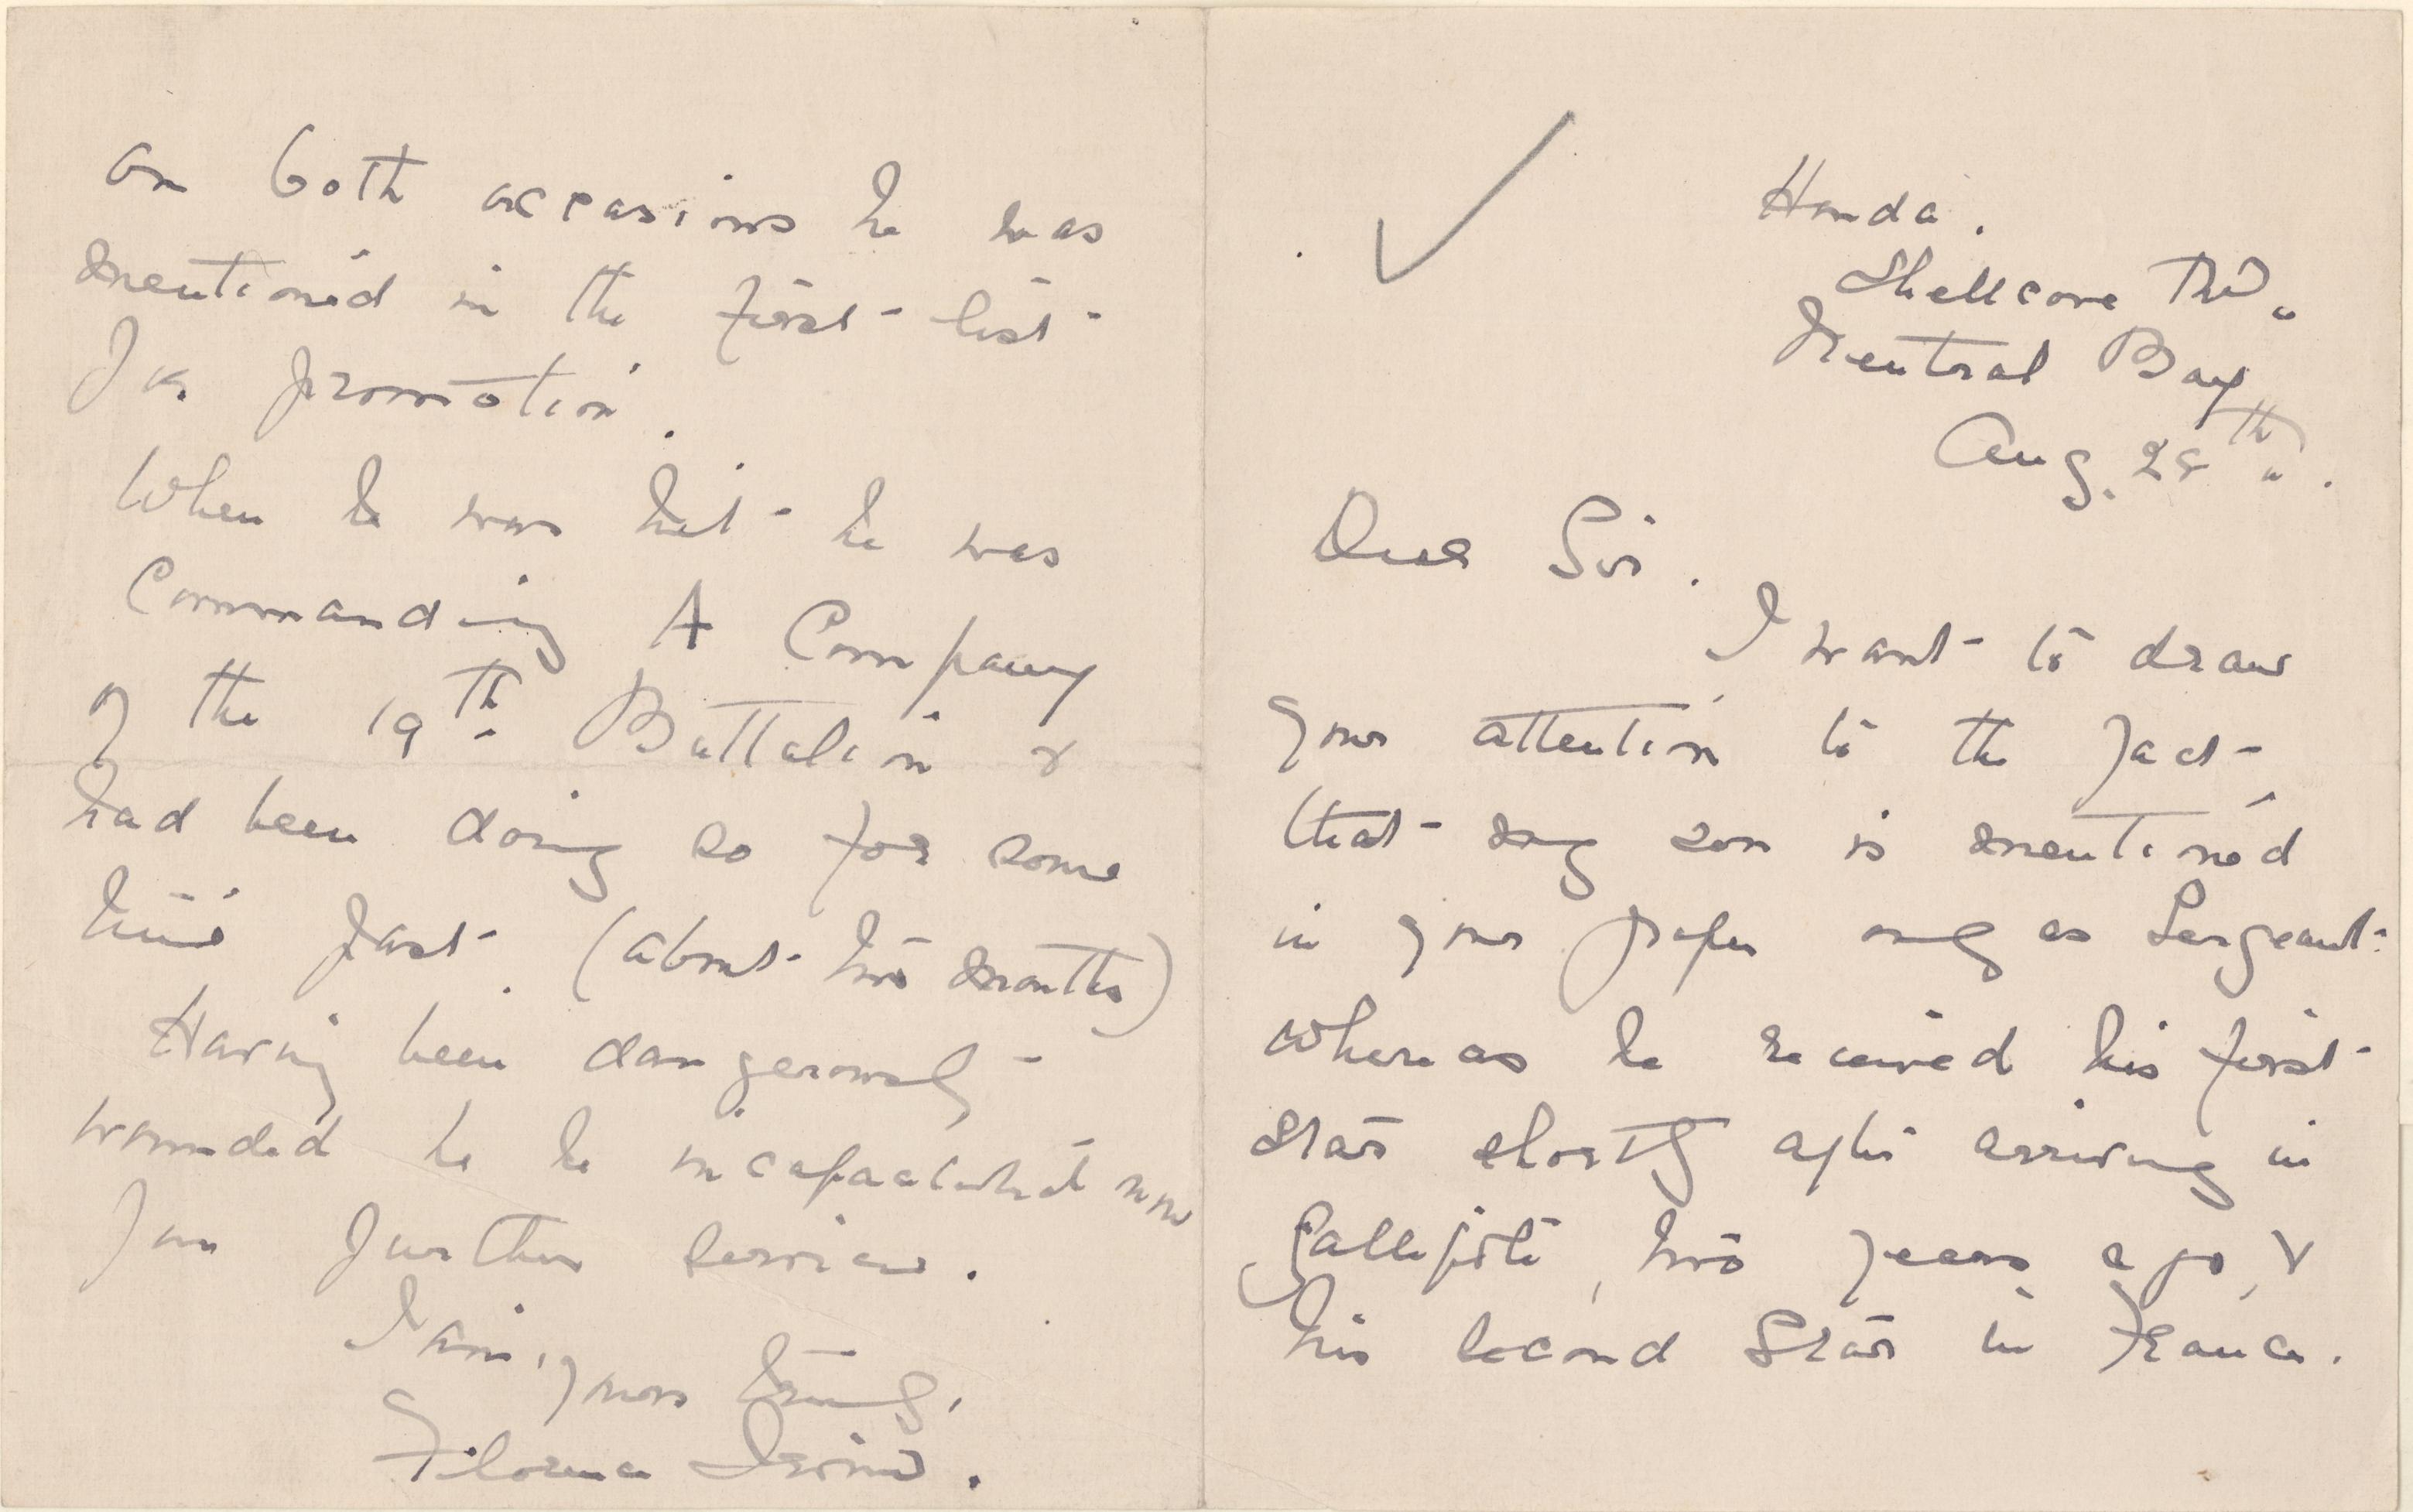 Honda.
Shellcove Rd.
Neutral Bay
Aug. 28th.
Dear Sir.
I want to draw
your attention to the fact
that my son is mentioned
in your paper only as Sergeant
whereas he received his first
star shortly after arriving in
Gallipoli, two years ago, &
his second Star in France.
on both occasions he was
mentioned in the first list
for promotion.
When he was hit he was
Commanding A Company
of the 19th Battalion &
had been doing so for some
time past. (about two months)
Having been dangerously
wounded he is incapacitated now
for further service.
I am, yours truly,
Florence Irvine.